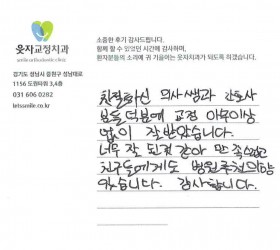 웃자교정치과
smile orthodontic clinic
경기도 성남시 중원구 성남대로
1156 도원타워 3,4층
031 606 0282
letssmile.co.kr
소중한 후기 감사드립니다.
함께 할 수 있었던 시간에 감사하며,
환자분들의 소리에 귀 기울이는 웃자치과가 되도록 하겠습니다.
친절하신 의사쌤과 간호사
분들 덕분에 교정 아무이상
없이 잘 받았습니다.
너무 잘 된것 같아 만족스럽고
친구들에게도 병원추천의향
있습니다. 감사합니다.